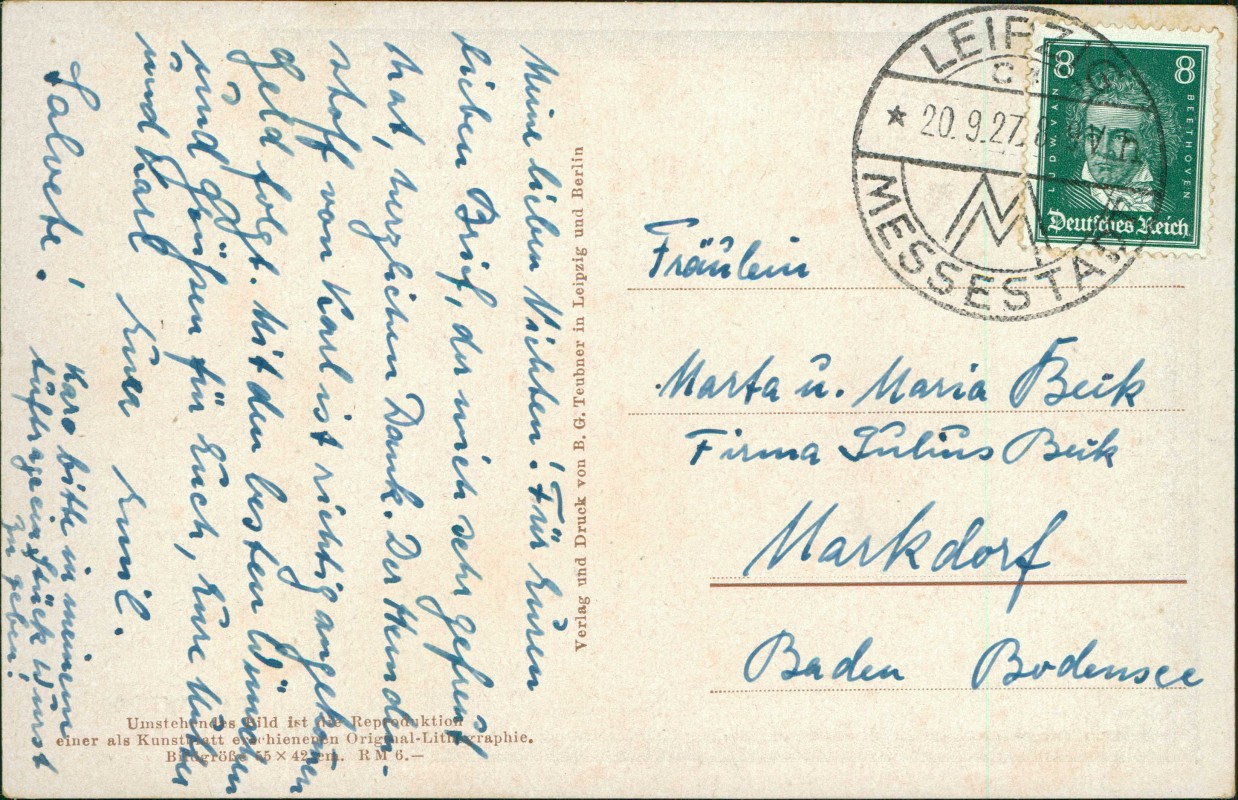 Meine lieben Nichten! Für Euren
lieben Brief, der mich sehr gefreut
hat, herzlichen Dank. Der Hemden-
stoff von Karl ist richtig angekommen
Geld folgt. Mit den besten Wünschen
und Grüßen für Euch, Eure Mutter
und Karl Euer Emil.
Salvete!
Karo bitte in meinem
Auftrage ein Stück Wurst
zu geben!
Verlag und Druck von B. G. Teubner in Leipzig und Berlin
Umstehendes Bild ist die Reproduktion
einer als Kunstblatt erschienenen Original-Lithographie.
Bildgröße 55 × 42 cm. RM 6.—
LEIPZIG
C
* 20.9.27. 8-9 V.
MESSESTADT
8 8
LUDWVAN BEETHOVEN
Deutsches Reich
Fräulein
Marta u. Maria Beik
Firma Julius Beik
Markdorf
Baden Bodensee